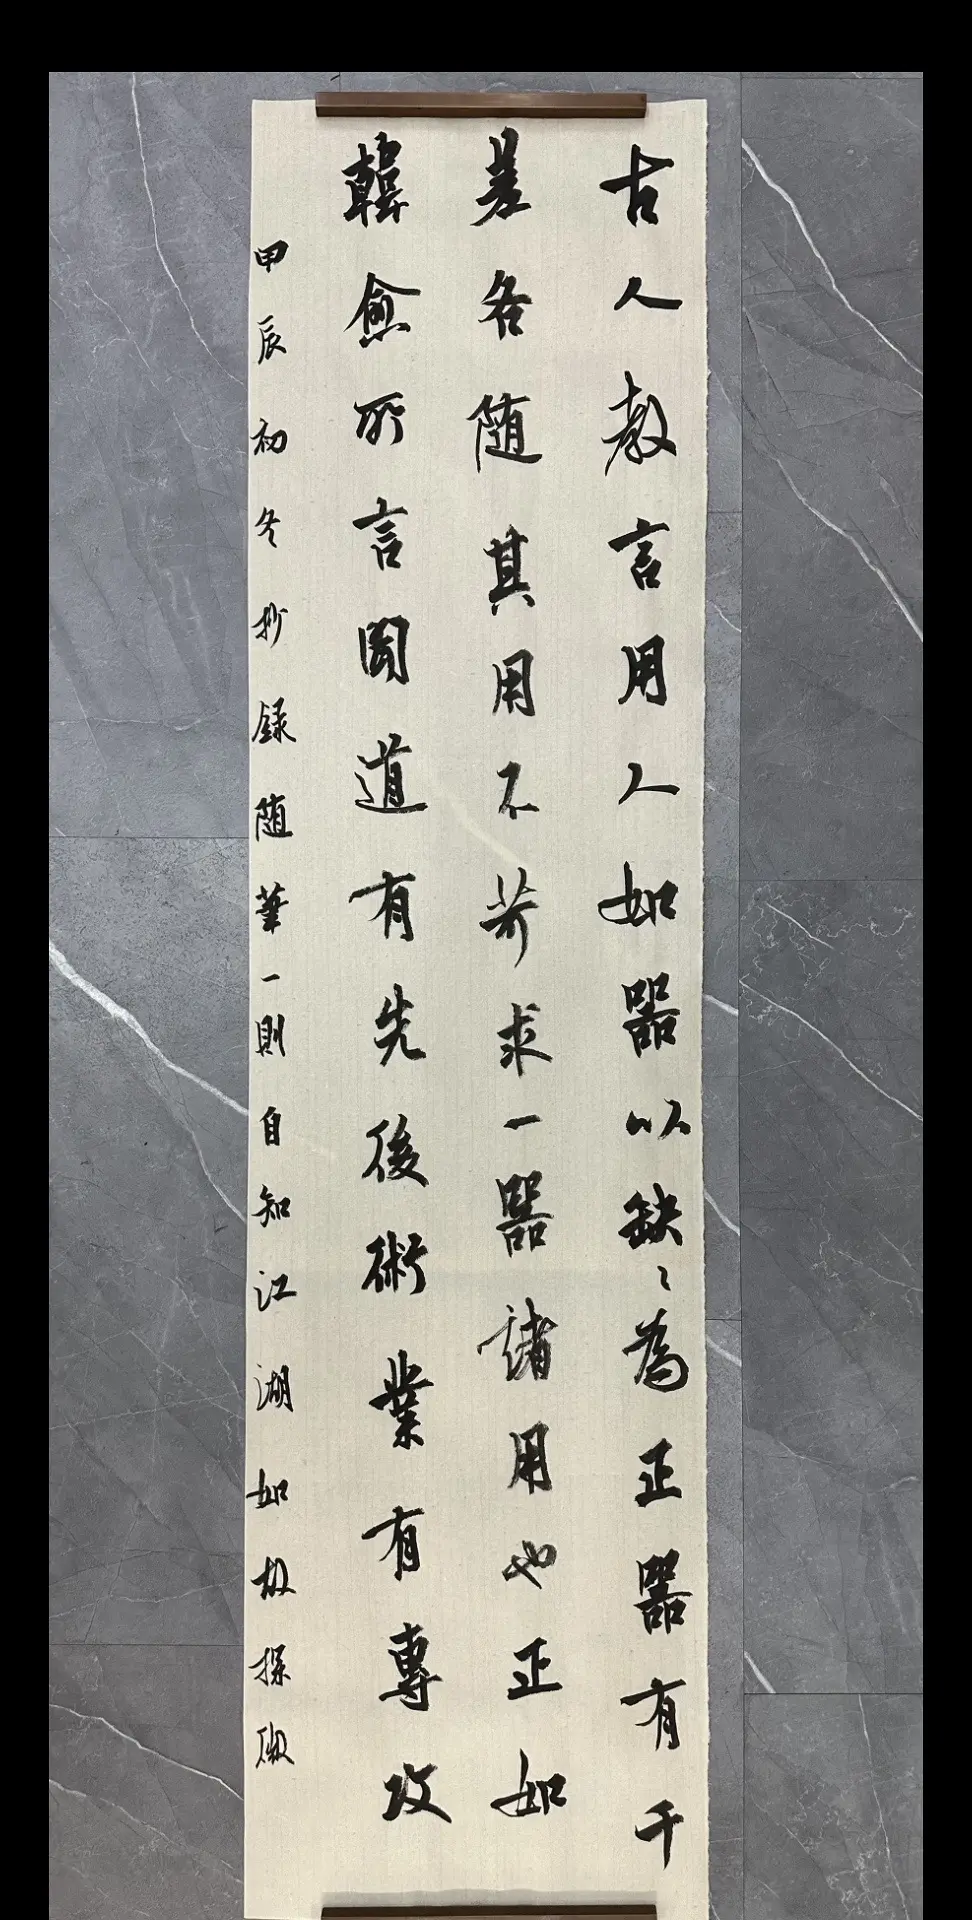 古人教言用人如器以缺〻為正器有千
差各随其用不苛求一器諸用也正如
韓愈所言聞道有先後術業有專攻
甲辰初冬抄録随筆一則自知江湖如故探微